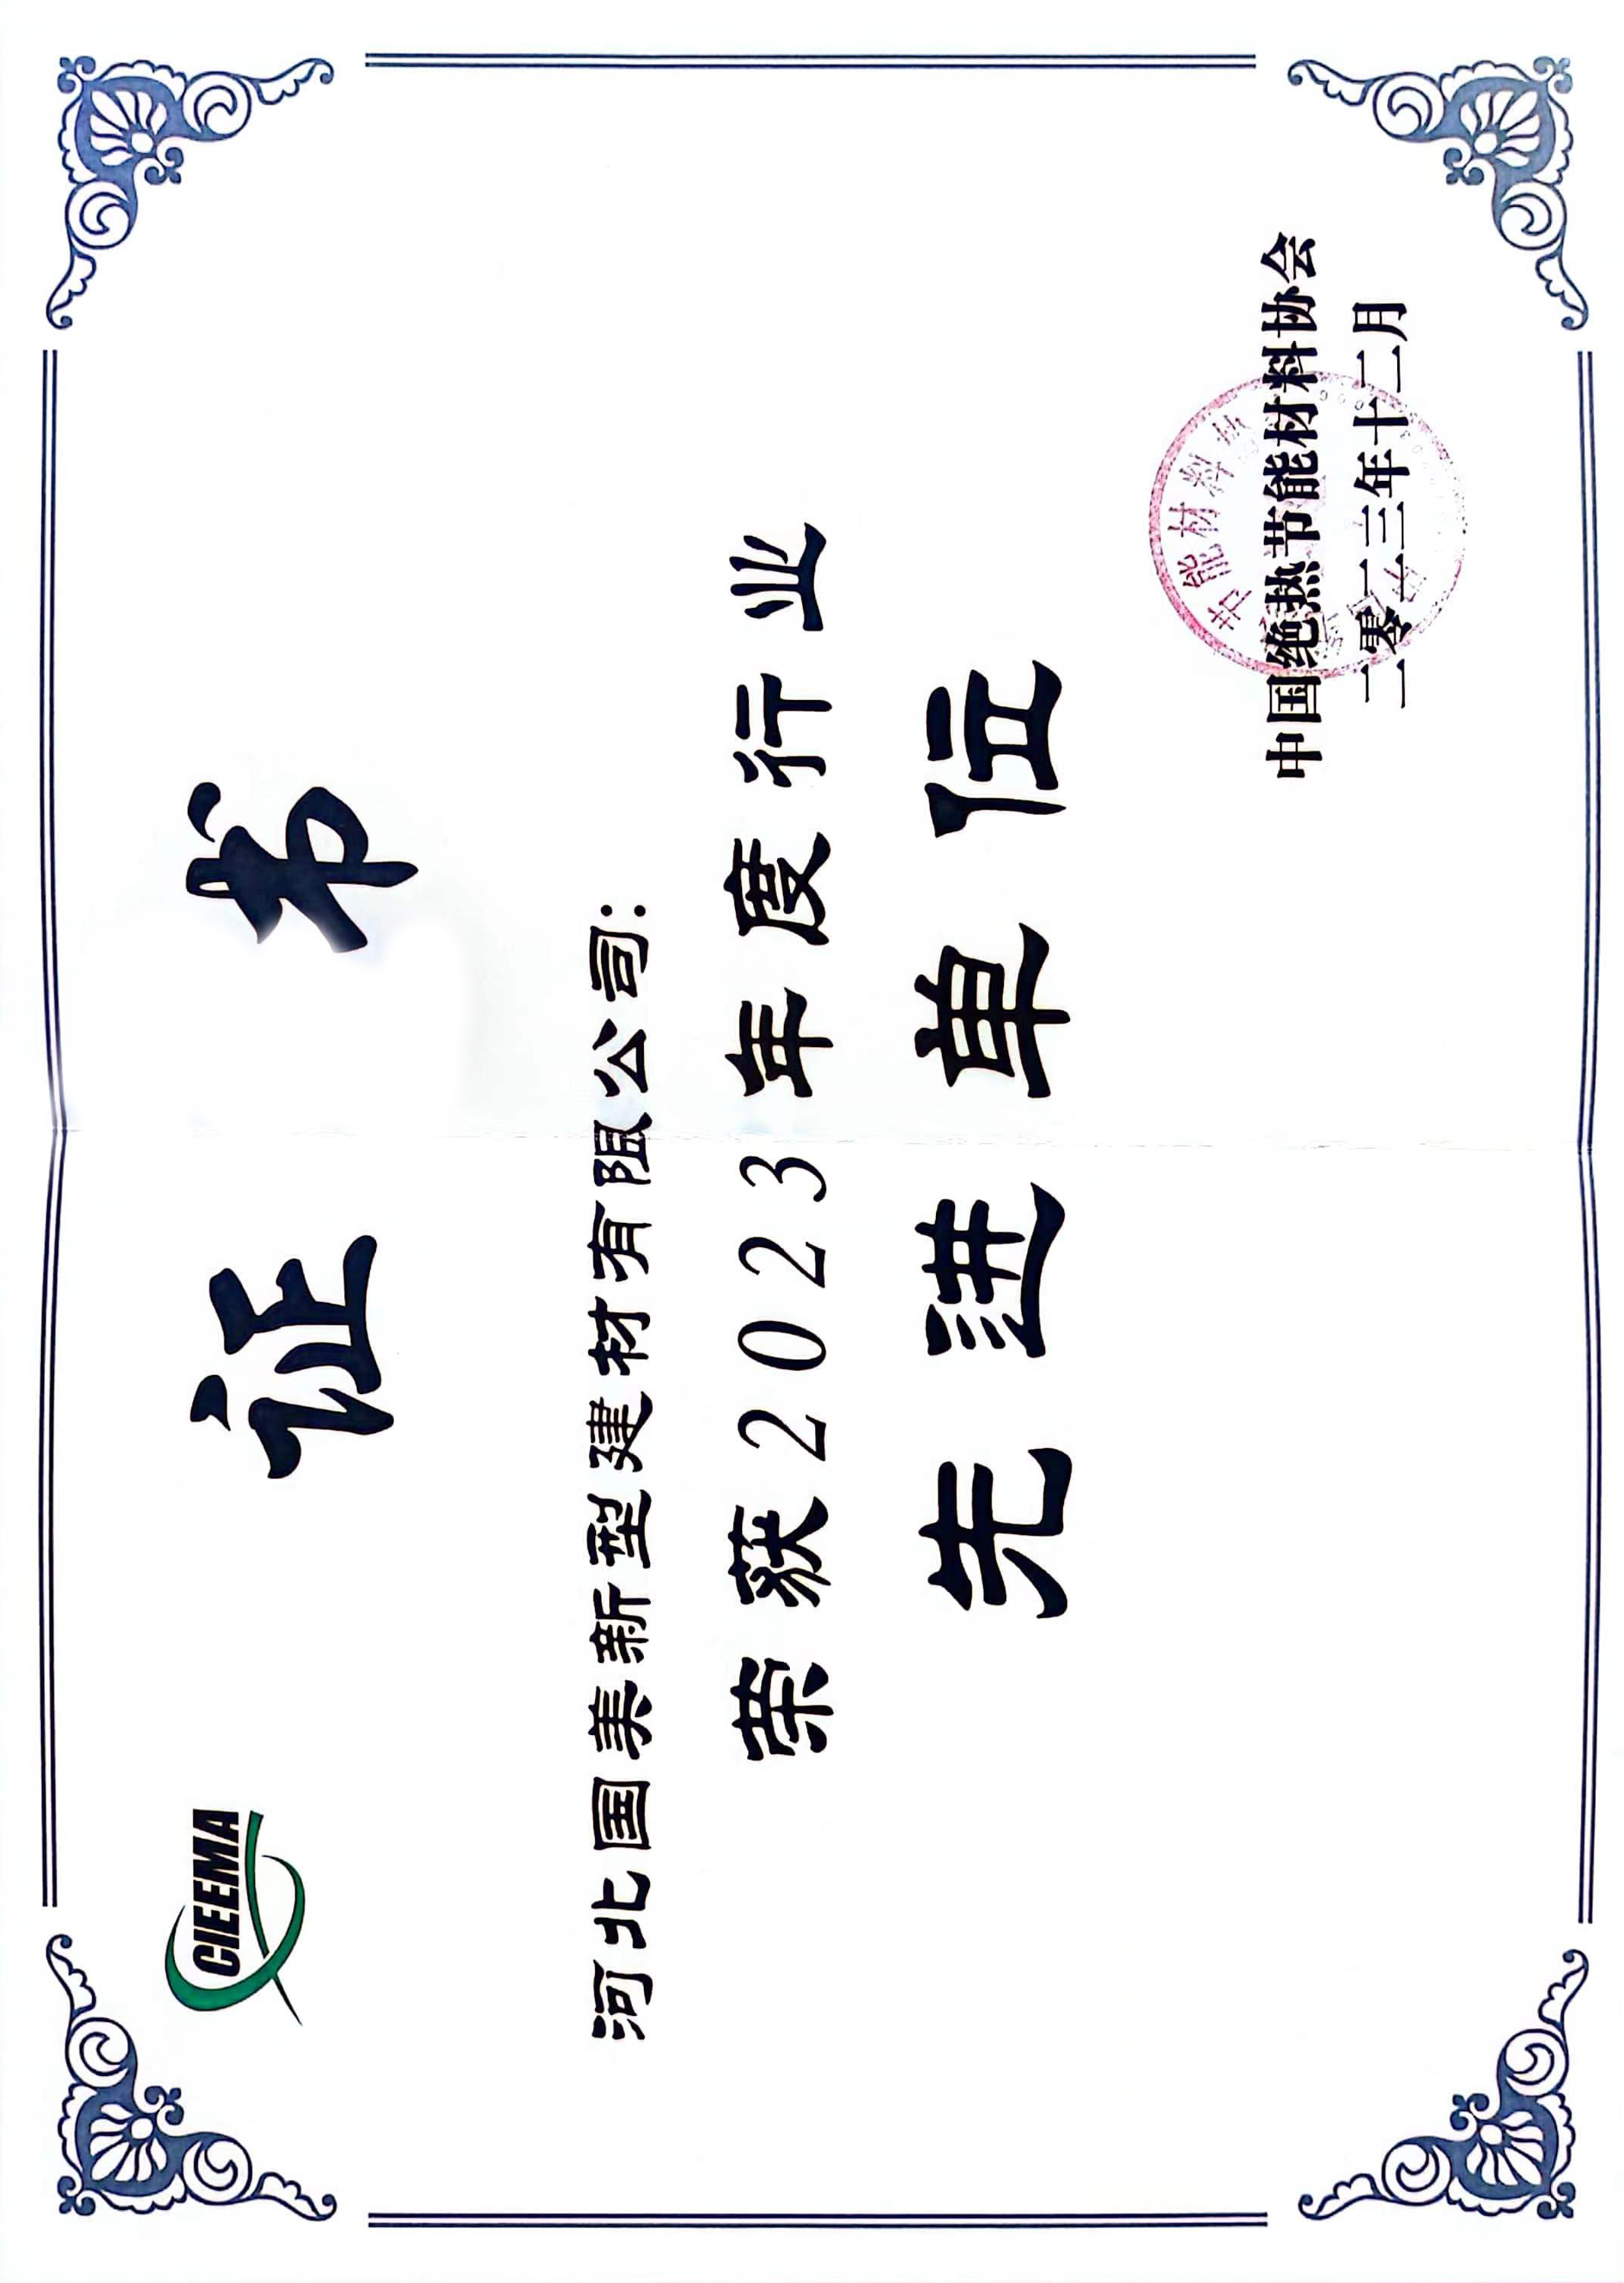 CIEEMA
证书
河北国美新型建材有限公司:
荣获2023年度行业
先进单位
中国绝热节能材料协会
二零二三年十二月
节能材料协